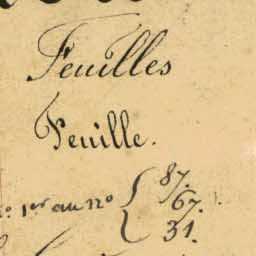 Feuilles
Feuille.
no 1er au no { 87.
67.
31.